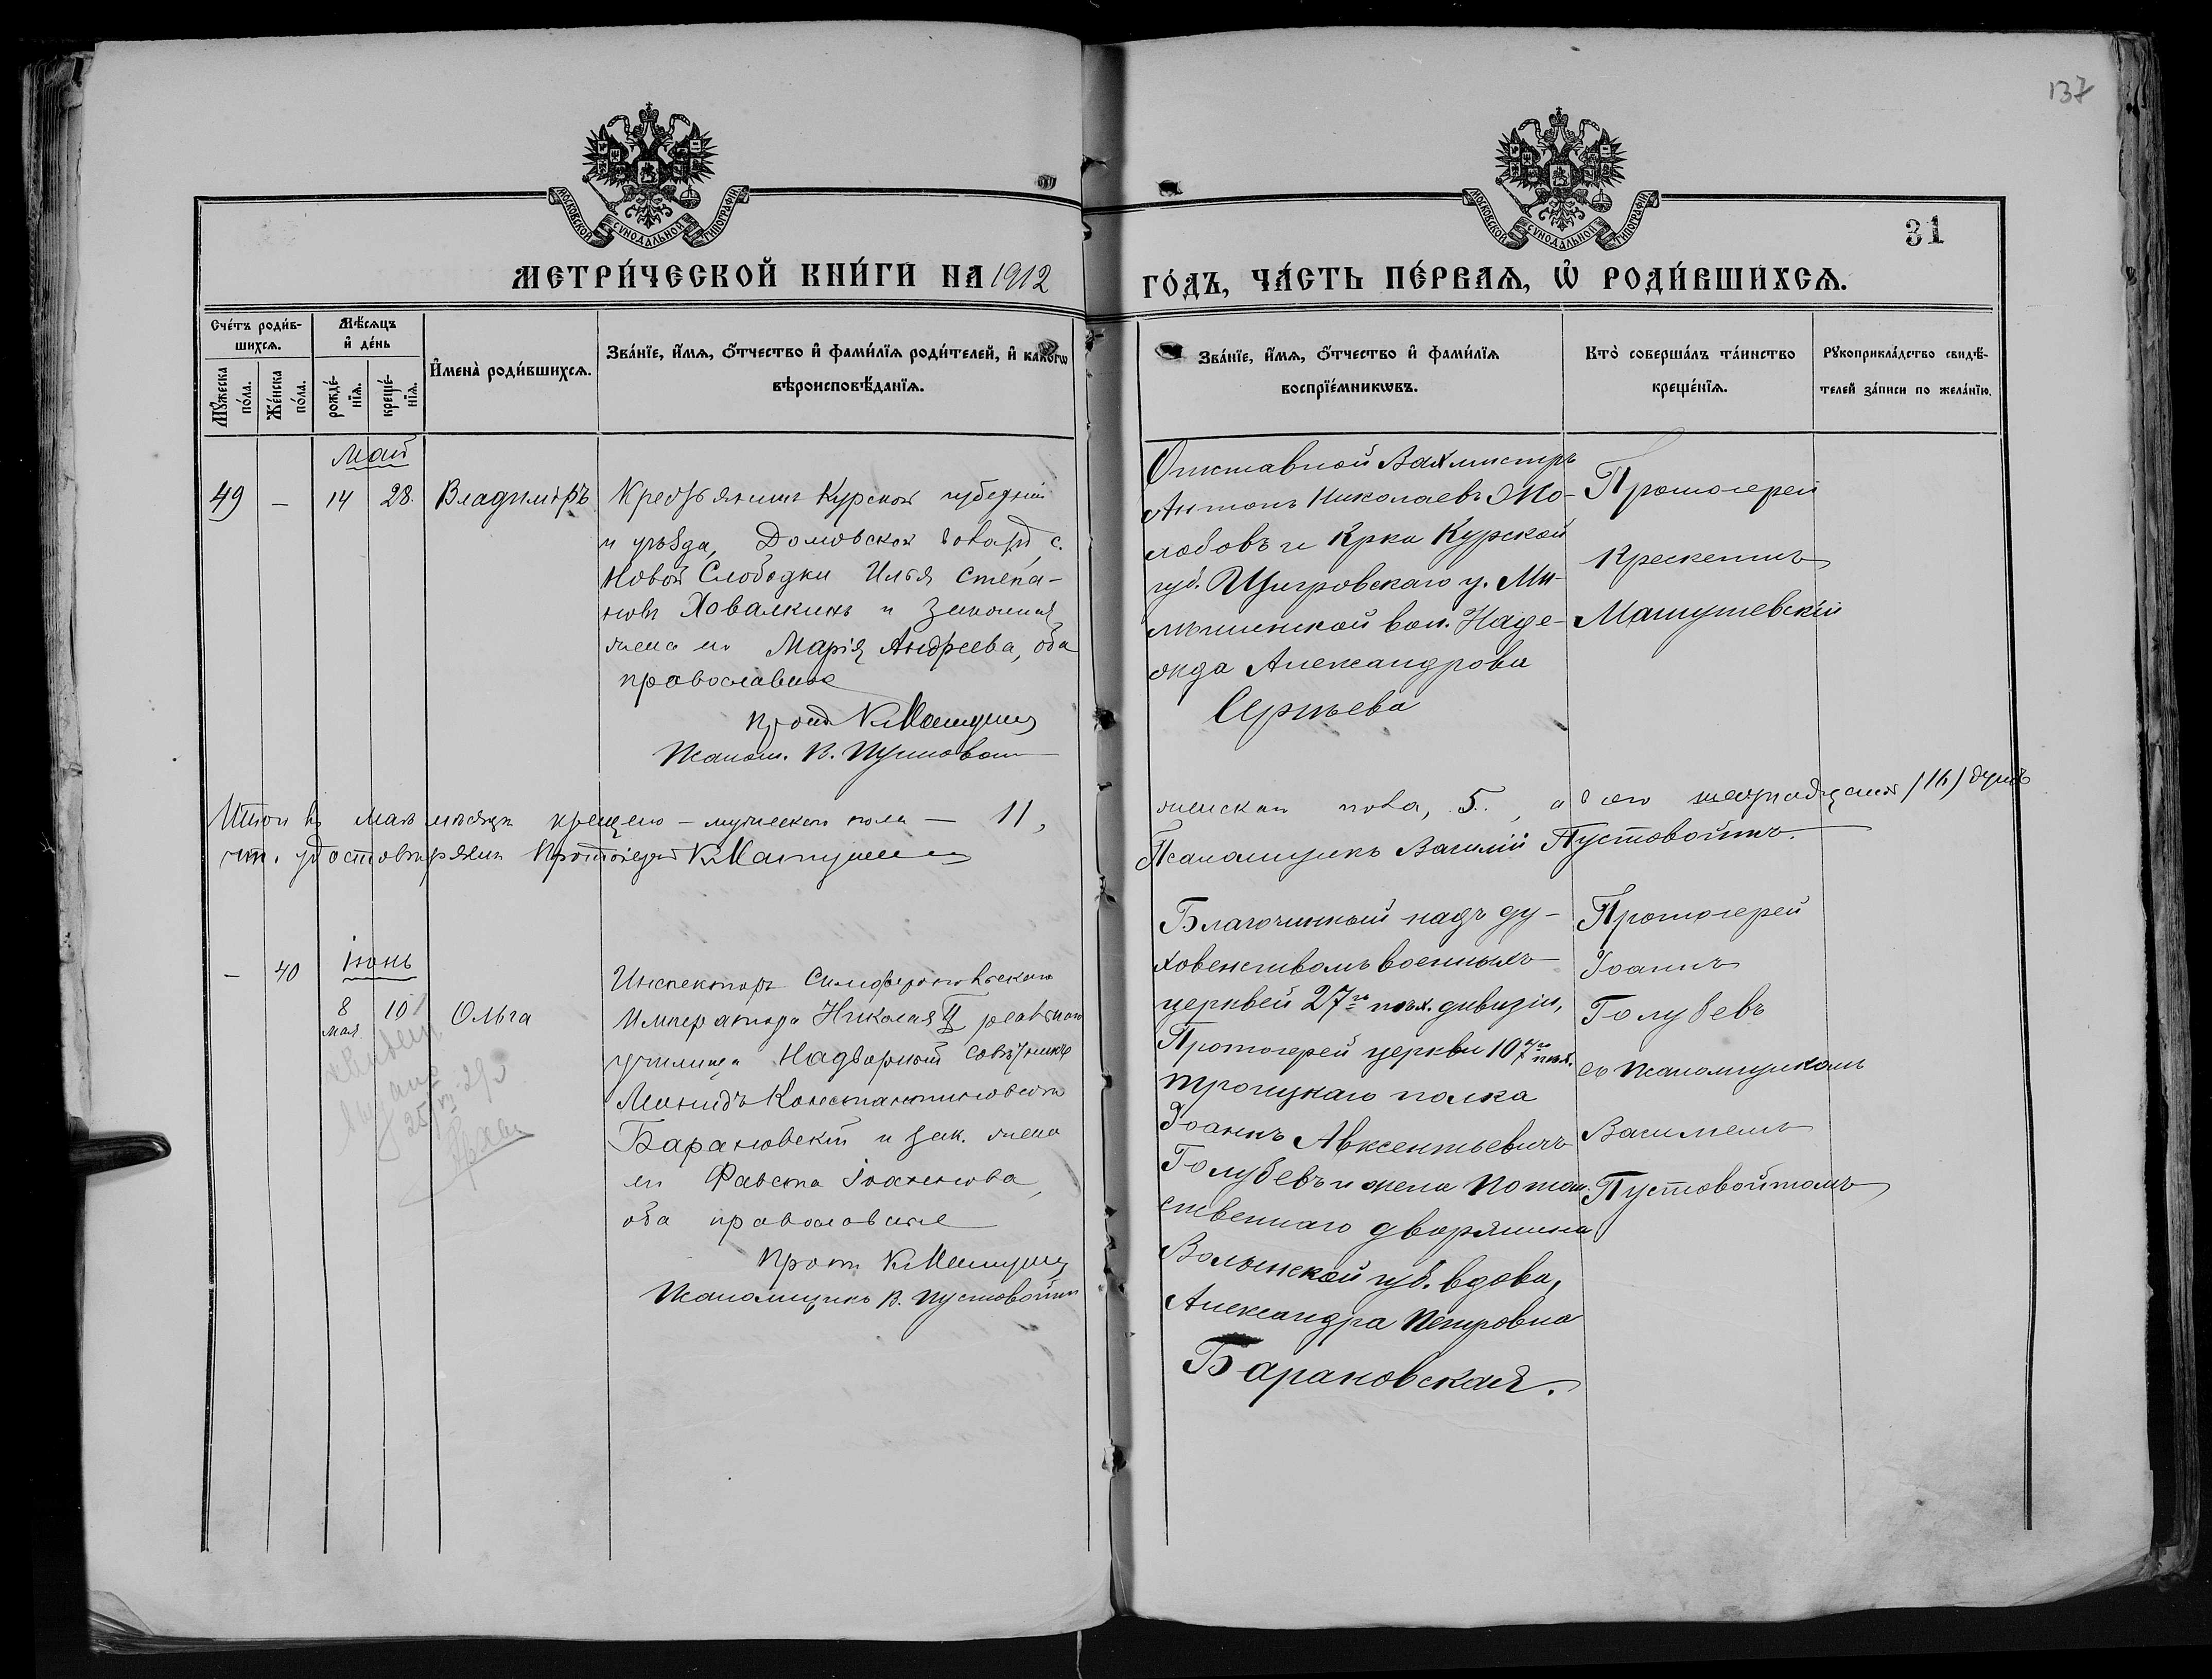 137
МОСКОВСКОЙ СѴНОДАЛЬНОЙ ТИПОГРАФІИ
МОСКОВСКОЙ СѴНОДАЛЬНОЙ ТИПОГРАФІИ
31
МЕТРИ́ЧЕСКОЙ КНИ́ГИ НА 1912
ГО́ДЪ, ЧА́СТЬ ПЕ́РВАѦ, Ѡ҆ РОДИ́ВШИХСѦ.
Сче́тъ роди́в-
шихсѧ.
Мꙋ́жеска
по́ла.
Же́нска
по́ла.
Мѣ́сѧцъ
и҆ де́нь
рожде́-
нїѧ.
креще́-
нїѧ.
И҆мена̀ роди́вшихсѧ.
Зва́нїе, и҆́мѧ, ѻ҆́тчество и҆ фами́лїѧ роди́телей, и҆ како́гѡ
вѣроисповѣ́данїѧ.
Зва́нїе, и҆́мѧ, ѻ҆́тчество и҆ фами́лїѧ
воспрїе́мникѡвъ.
Кто̀ соверша́лъ та́инство
креще́нїѧ.
Рꙋкоприкла́дство свидѣ́-
телей за́писи по жела́нїю.
Май
49 — 14 28. Владиміръ
Крестьянинъ Курской губерніи
и уѣзда, Волости, с.
Новой Слободки Илья Степа-
новъ Ховалкинъ и законная
жена его Марія Андреева, оба
православные
Прот. К. Матушев
Псалом. В. Пустовойт
Отставной Вахмистръ
Антонъ Николаевъ Жо-
лобовъ и Крка Курской
губ. Щигровскаго у. Ми-
лѣшинской вол. Наде-
жда Александрова
Сергѣева
Протоіерей
Крискентъ
Матушевскій
Итого въ маѣ мѣсяцѣ крещено — мужескаго пола — 11,
женскаго пола, 5, а всего шестнадцать (16) душъ
удостовѣряемъ Протоіерей К. Матушев
Псаломщикъ Василій Пустовойтъ.
Іюнь
— 40 8 мая 10 Ольга
Инспекторъ Симферопольскаго
Императора Николая II реальнаго
училища Надворный Совѣтникъ
Леонидъ Константиновичъ
Барановскій и зак. жена
его Фавста Іоаннова,
оба православные
Прот. К. Матушев
Псаломщикъ В. Пустовойтъ
Благочинный надъ ду-
ховенствомъ военныхъ
церквей 27й пѣх. дивизіи,
Протоіерей церкви 107го пѣх.
Троицкаго полка
Іоаннъ Авксентьевичъ
Голубевъ и жена Потом-
ственнаго дворянина
Волынской губ. вдова,
Александра Петровна
Барановская.
Протоіерей
Іоаннъ
Голубевъ
съ псаломщикомъ
Василіемъ
Пустовойтомъ